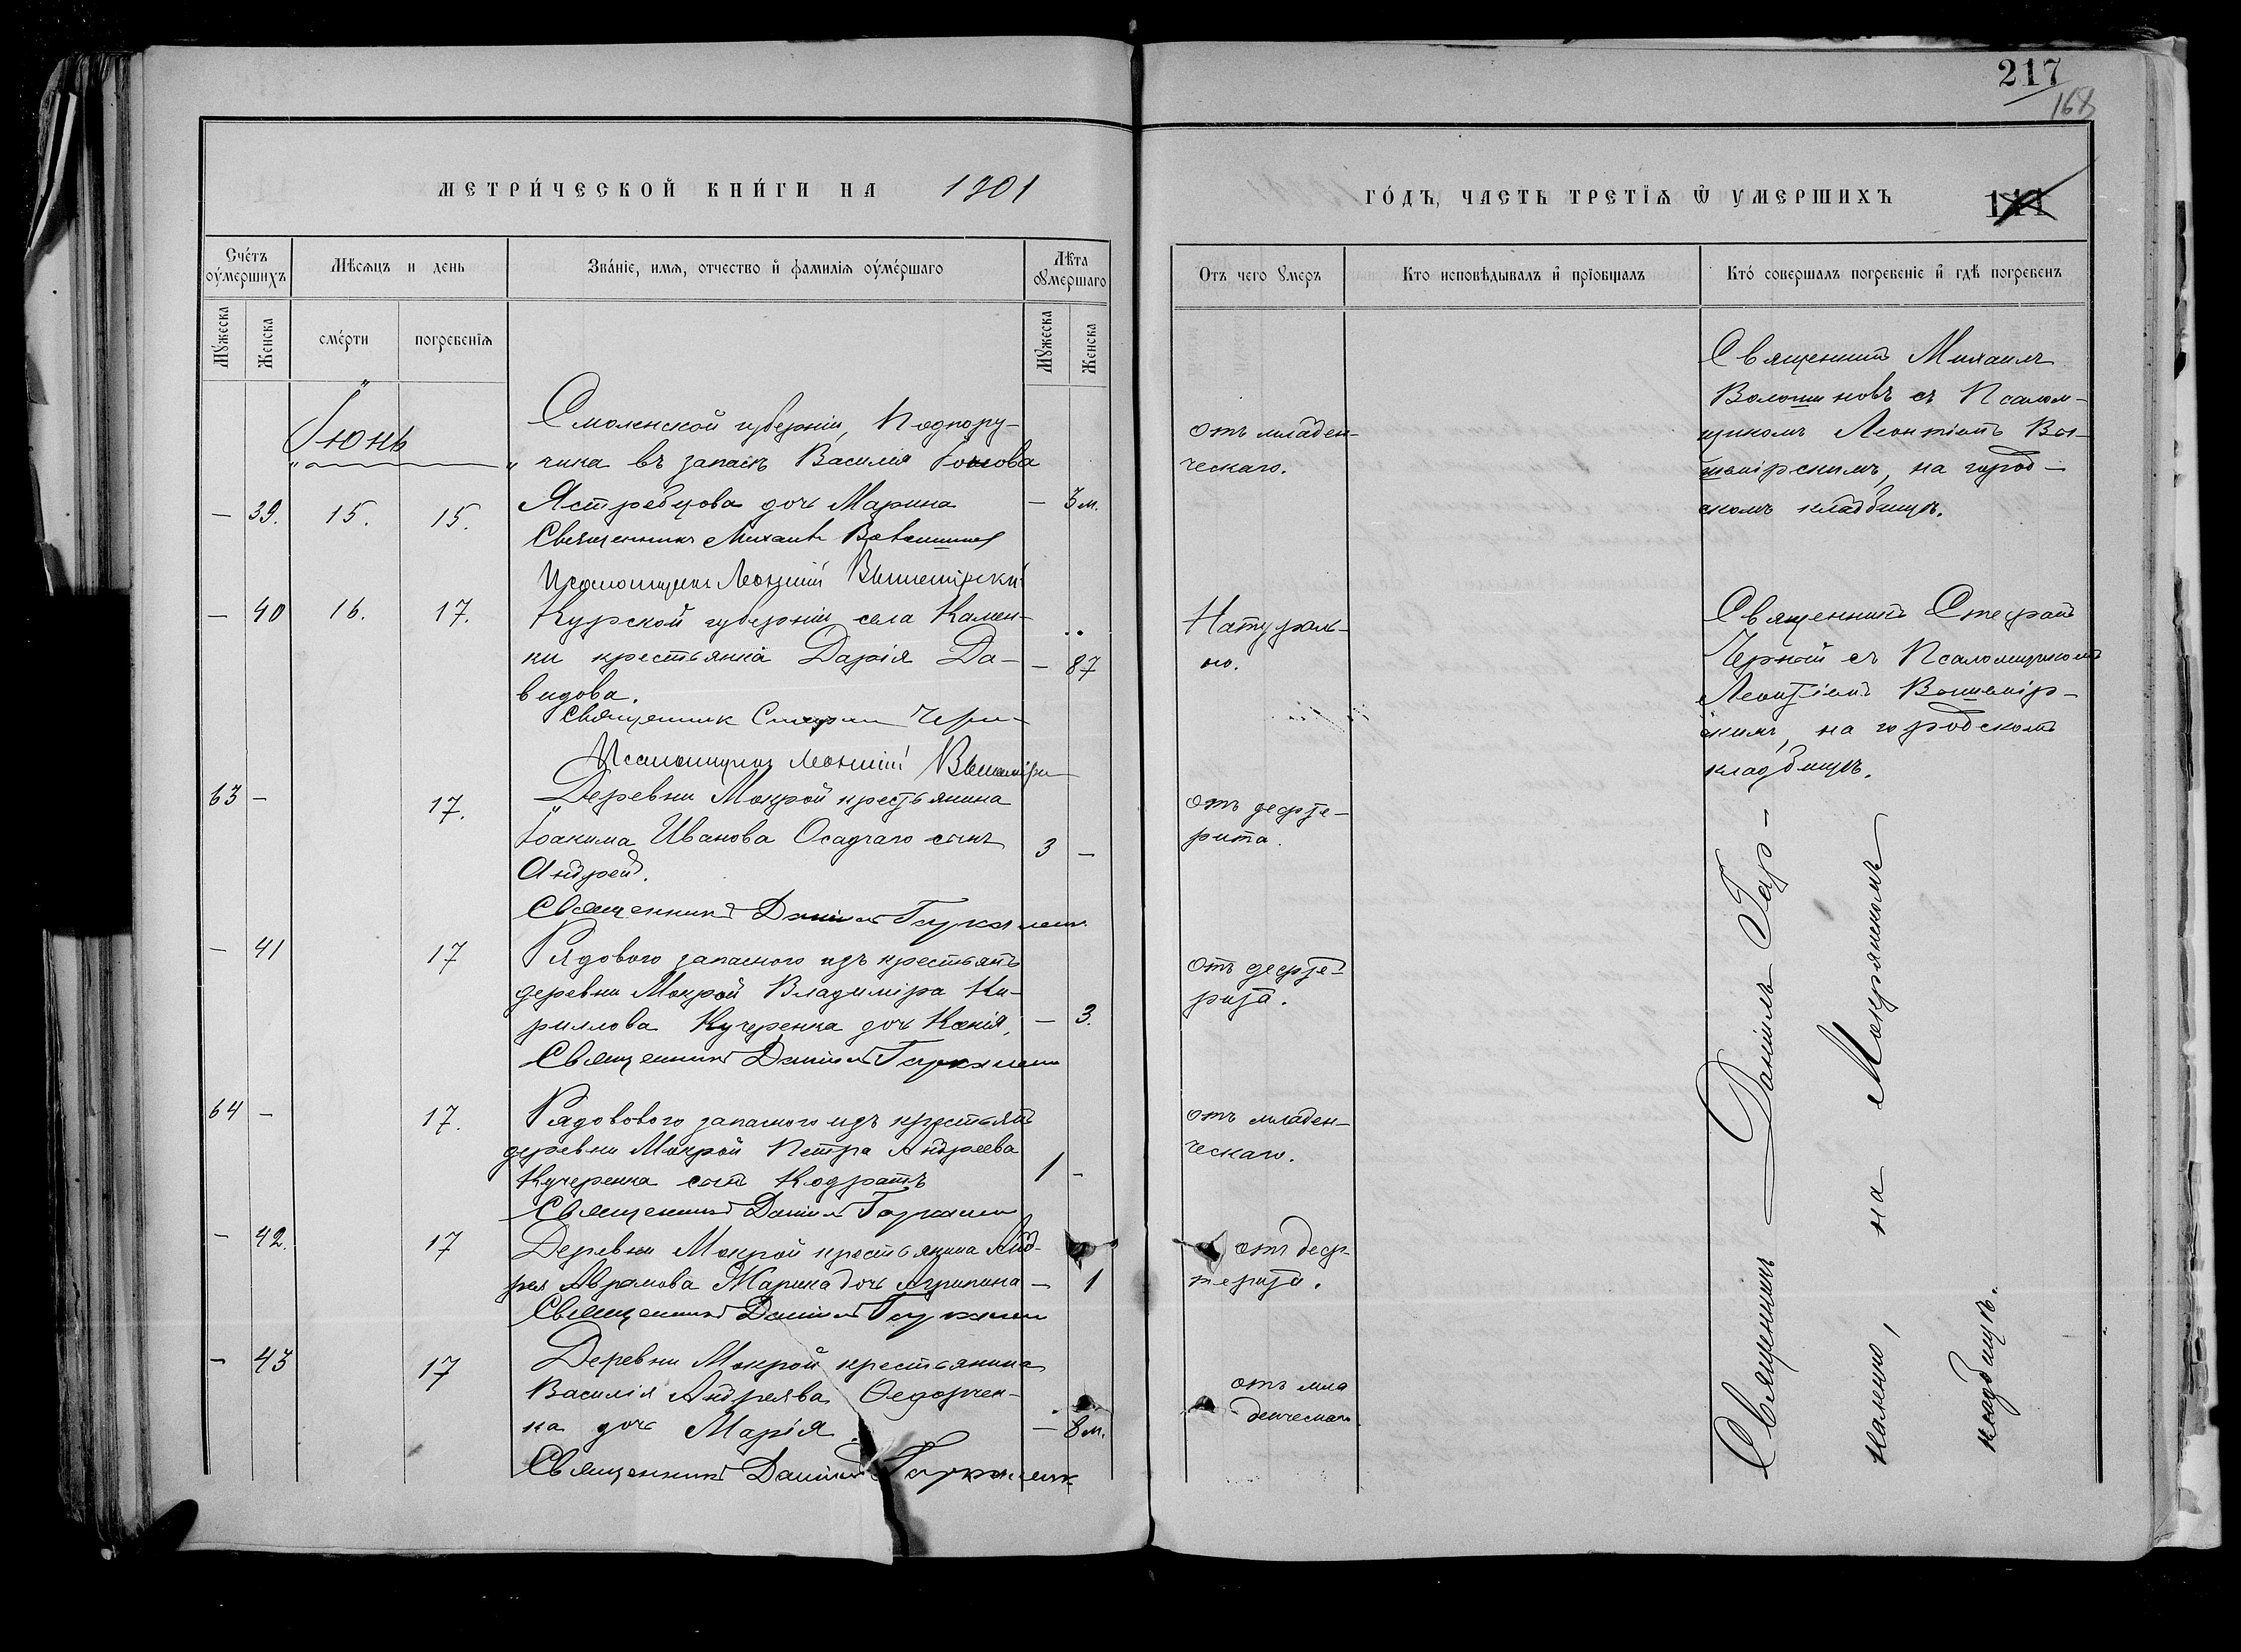 217
168
МЕТРИ́ЧЕСКОЙ КНИ́ГИ НА 1901
ГО́ДЪ, ЧАСТЬ ТРЕТІѦ Ѿ УМЕРШИХЪ
141
Счє́тъ оу҆мершихъ
Мѣсѧцъ и день
Зва́нїе, имѧ, отчество и҆ фамилїѧ оу҆ме́ршаго
Лѣта оу҆мершаго
Мꙋ́жеска
Женска
сме́рти
погребенїѧ
Мꙋжеска
Женска
Отъ чего ꙋмеръ
Кто исповѣдывалъ и҆ прїобщалъ
Кто́ совершалъ погребенїе и҆ гдѣ погребенъ
Іюнь
Смоленской губерніи, Подпору-
чика въ запасѣ Василия
— 39. 15. 15. Ястребцова дочь Марина — 3 м.
Священникъ Михаилъ
Псаломщикъ Леонтій Вышемірскій
отъ младен-
ческаго.
Священникъ Михаилъ
Волошиновъ съ Псалом-
щикомъ Леонтіемъ Вы-
шемірскимъ, на город-
скомъ кладбищѣ.
— 40 16. 17. Курской губерніи села Камен-
ки крестьянка Дарія Да- — 87
видова.
Священник Стефан Черн
Псаломщикъ Леонтій
Натураль-
но.
Священникъ Стефанъ
Черный съ Псаломщикомъ
Леонтіемъ Вышемір-
скимъ, на городскомъ
кладбищѣ.
63 — 17. Деревни Мокрой крестьянина
Іоакима Иванова Осадчаго сынъ 3 —
Андрей.
Священникъ Даніилъ
отъ дефте-
рита.
— 41 17 Рядового запасного изъ крестьянъ
деревни Мокрой Владиміра Ки-
риллова Кучеренка дочь Ксенія, — 3.
Священникъ Даніилъ
отъ дефте-
рита.
64 — 17. Рядовового запасного изъ крестьянъ
деревни Мокрой Петра Андреева
Кучеренка сынъ Кодратъ 1 —
Священникъ Даніилъ
отъ младен-
ческаго.
— 42. 17 Деревни Мокрой крестьянина Анд-
рея Аврамова Жарика дочь Агрипина — 1
Священникъ Даніилъ
отъ деф-
терита.
— 43 17 Деревни Мокрой крестьянина
Василія Андреява Ѳедорчен-
ка дочь Марія. — 8 м.
Священникъ Даніилъ
отъ мла
денческаго.
Священникъ Даніилъ Гар-
каленко, на Мокрянскомъ
кладбищѣ.